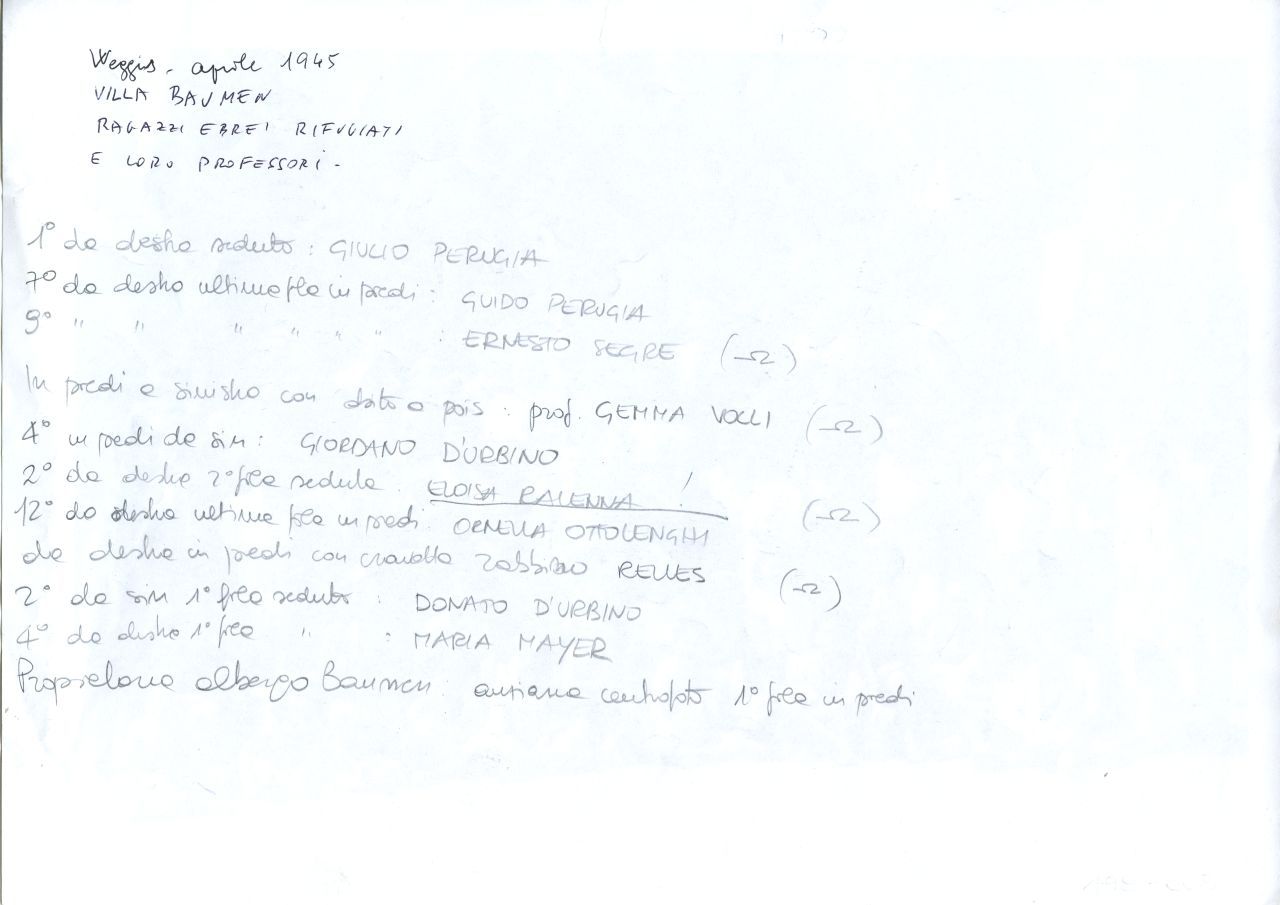 Weggis - aprile 1945
VILLA BAUMEN
RAGAZZI EBREI RIFUGIATI
E LORO PROFESSORI -
1° da destra seduto : GIULIO PERUGIA
7° da destra ultima fila in piedi : GUIDO PERUGIA
9° " " " " " " : ERNESTO SEGRE (Ω)
In piedi a sinistra con abito a pois : prof. GEMMA VOLLI (Ω)
4° in piedi da sin : GIORDANO D'URBINO
2° da destra 2° fila seduta : ELOISA RAVENNA !
12° da destra ultima fila in piedi : ORNELLA OTTOLENGHI (Ω)
da destra in piedi con cravatta rabbino RELLES (Ω)
2° da sin 1° fila seduto : DONATO D'URBINO
4° da destra 1° fila " : MARIA MAYER
Proprietaria albergo Baumen : anziana centrofoto 1° fila in piedi